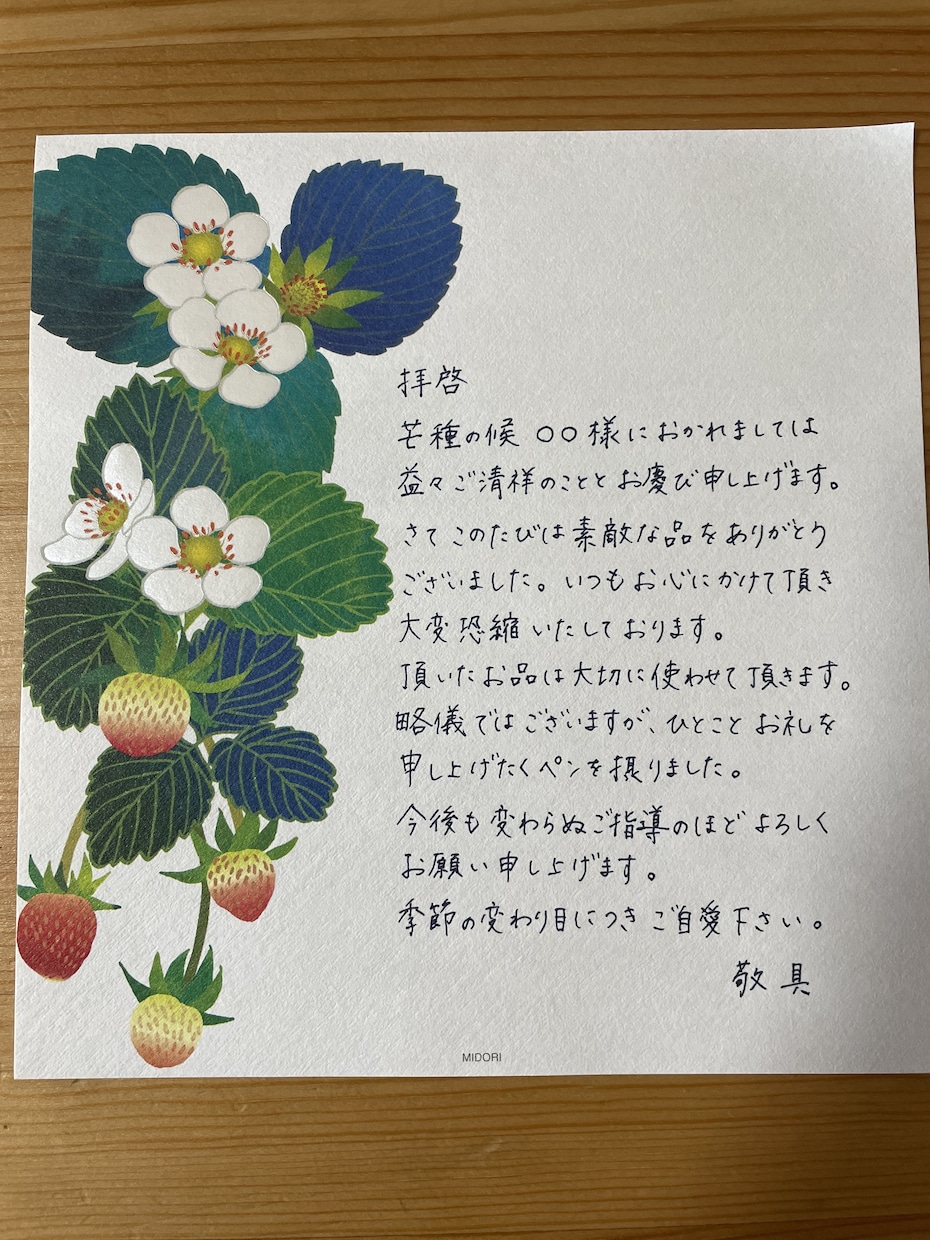 拝啓
芒種の候 〇〇様におかれましては
益々ご清祥のこととお慶び申し上げます。
さて このたびは素敵な品をありがとう
ございました。いつもお心にかけて頂き
大変恐縮いたしております。
頂いたお品は大切に使わせて頂きます。
略儀ではございますが、ひとことお礼を
申し上げたくペンを摂りました。
今後も変わらぬご指導のほどよろしく
お願い申し上げます。
季節の変わり目につきご自愛下さい。
敬具
MIDORI